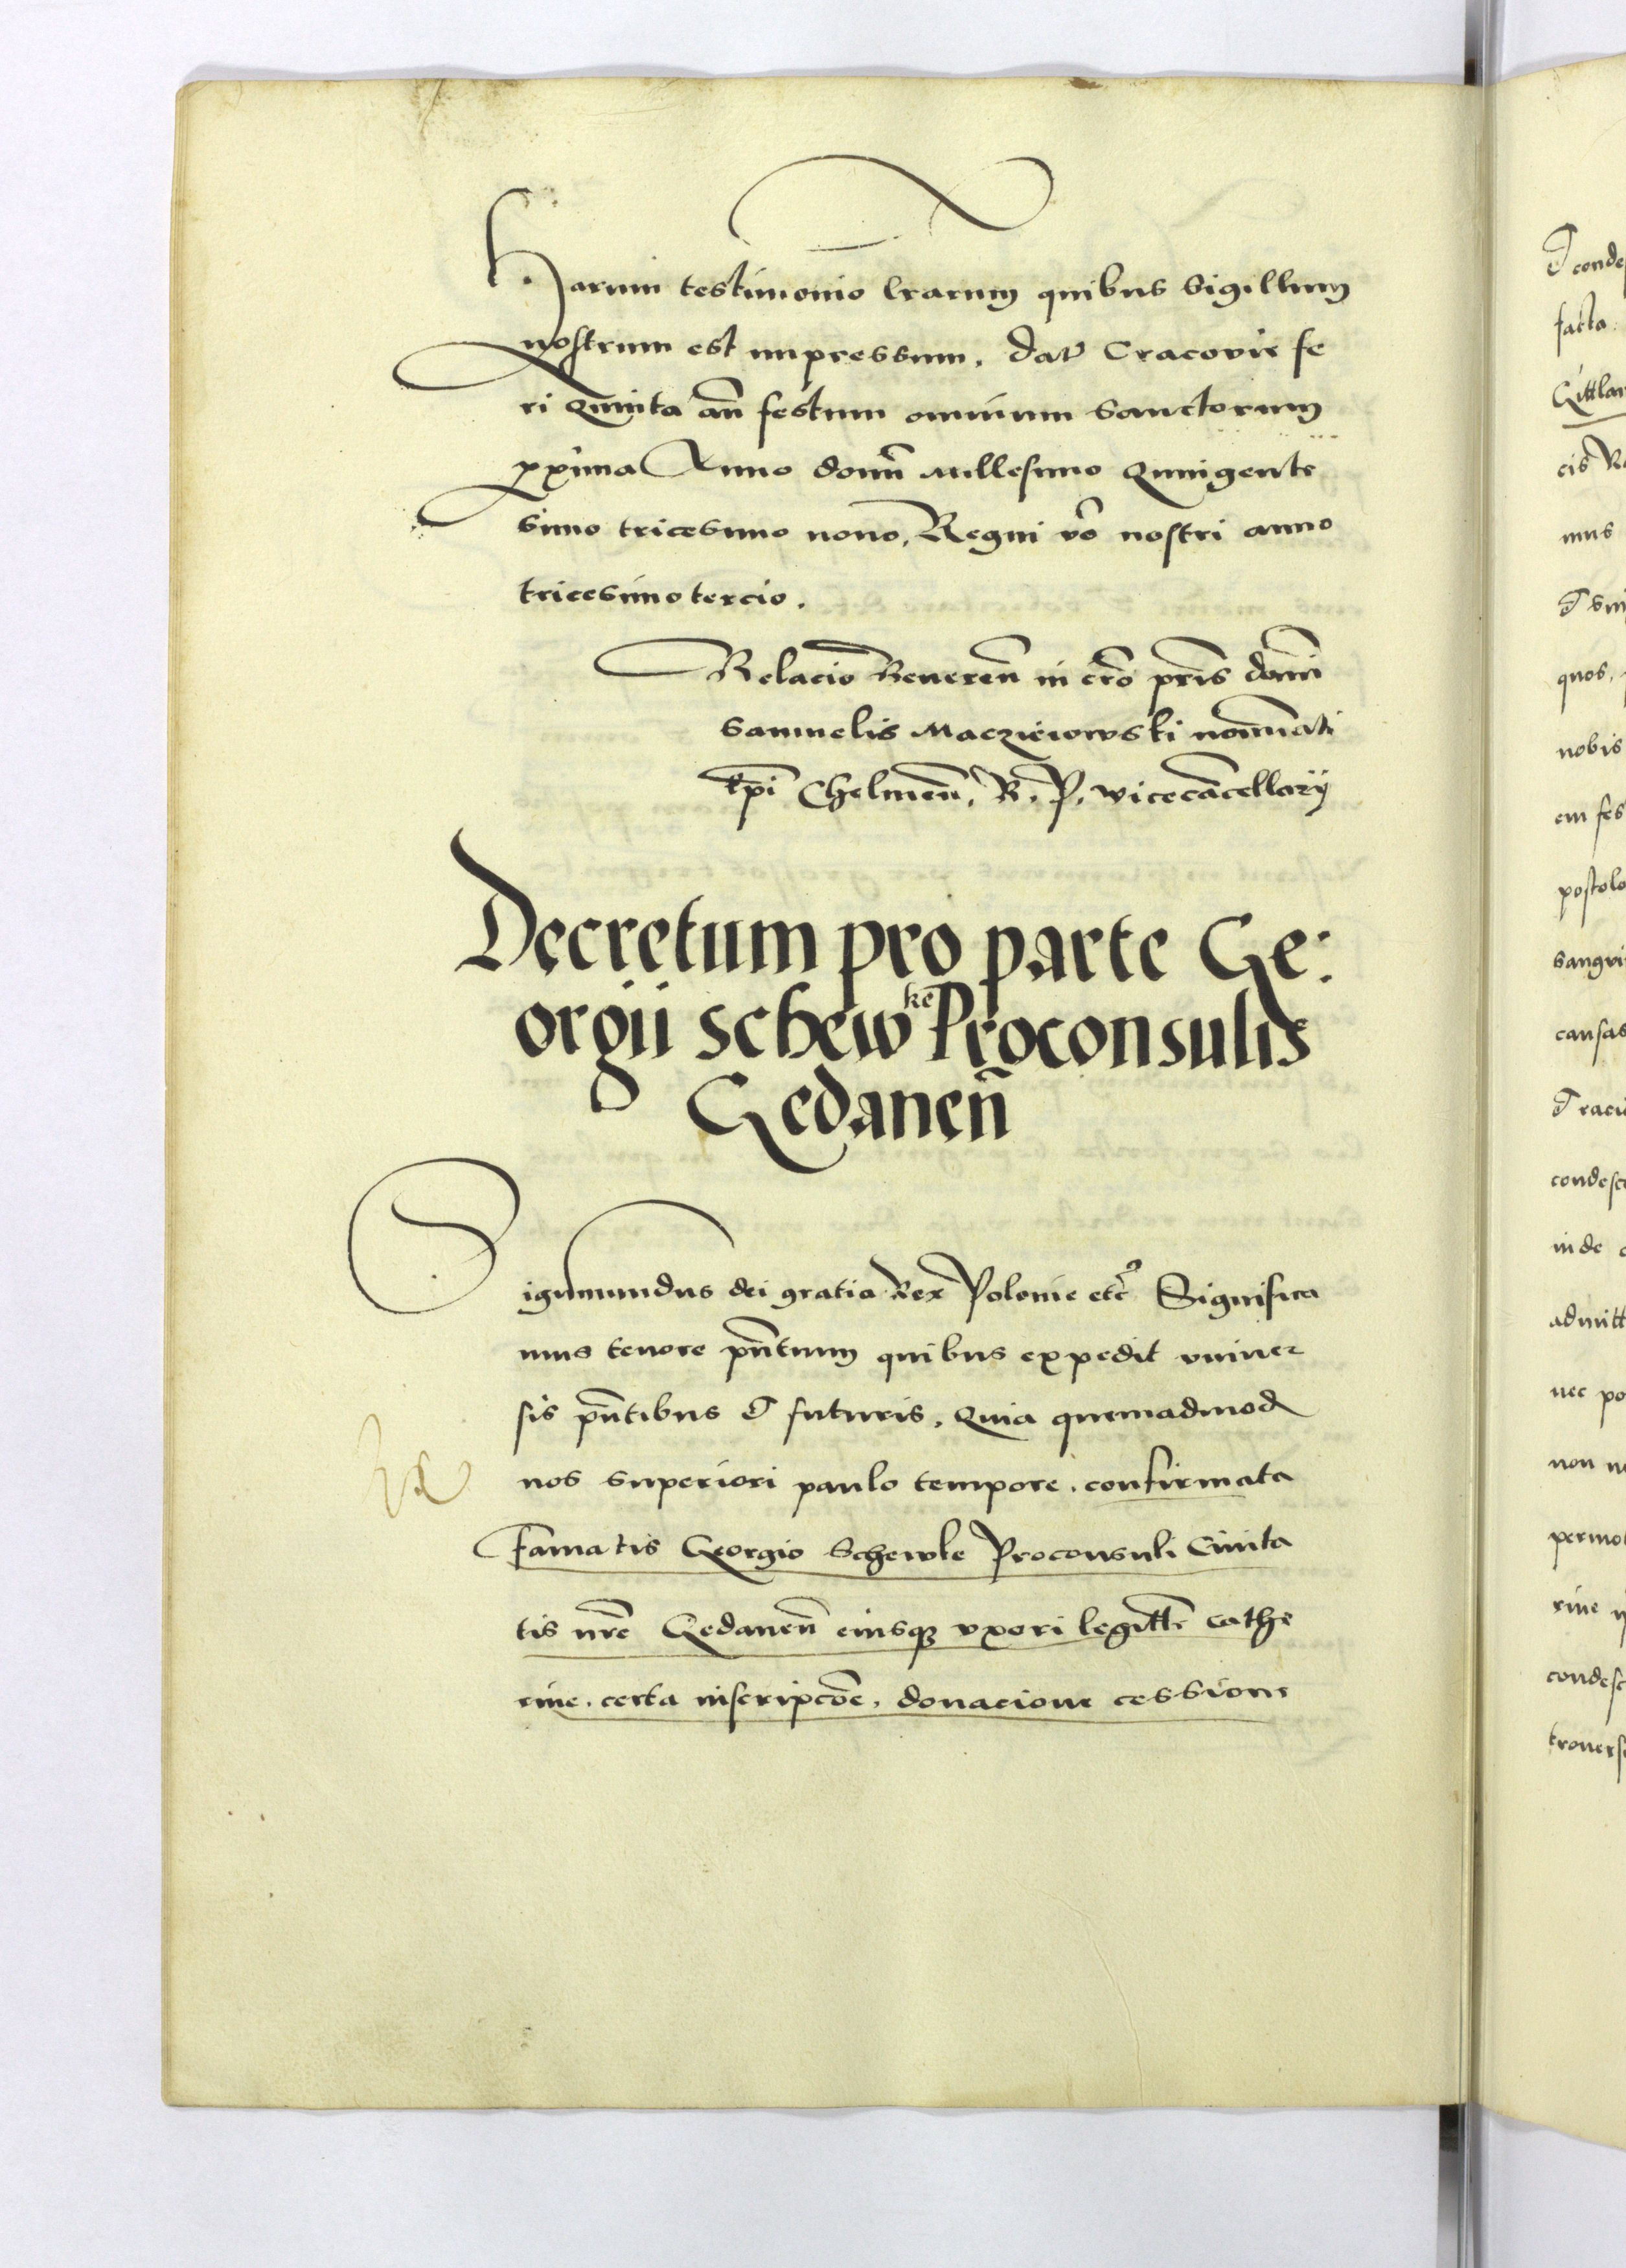 Harum testimonio lrarum quibus Sigillum
nostrum est impressum. Dat Cracovie fe
ri Quinta an festum omnium Sanctorum
pxima Anno domi Millesimo Quingente
simo tricesimo nono, Regni vo nostri anno
tricesimo tercio.
Relacio Reveren in cro pris domi
Samuelis Maczieiowski nominati
Epi Chelmen. R. P. vicecancellarij
Decretum pro parte Ge:
orgii schewke Proconsulis
Gedanen
Sigismundus dei gratia Rex Polonie etc Significa
mus tenore pntium quibus expedit univer
sis pntibus et futuris, Quia quemadmod
nos superiori paulo tempore. confirmata
Famatis Georgio Schewke Proconsuli Civita
tis nre Gedanen eiusque uxori legitt cathe
rine. certa inscripcoe. donacione cessione
et conde
facta.
cis
mus
quos,
nobis
em fes
postolo
causas
condesc
inde
admitt
nec po
non
permot
rine
condesc
trovers